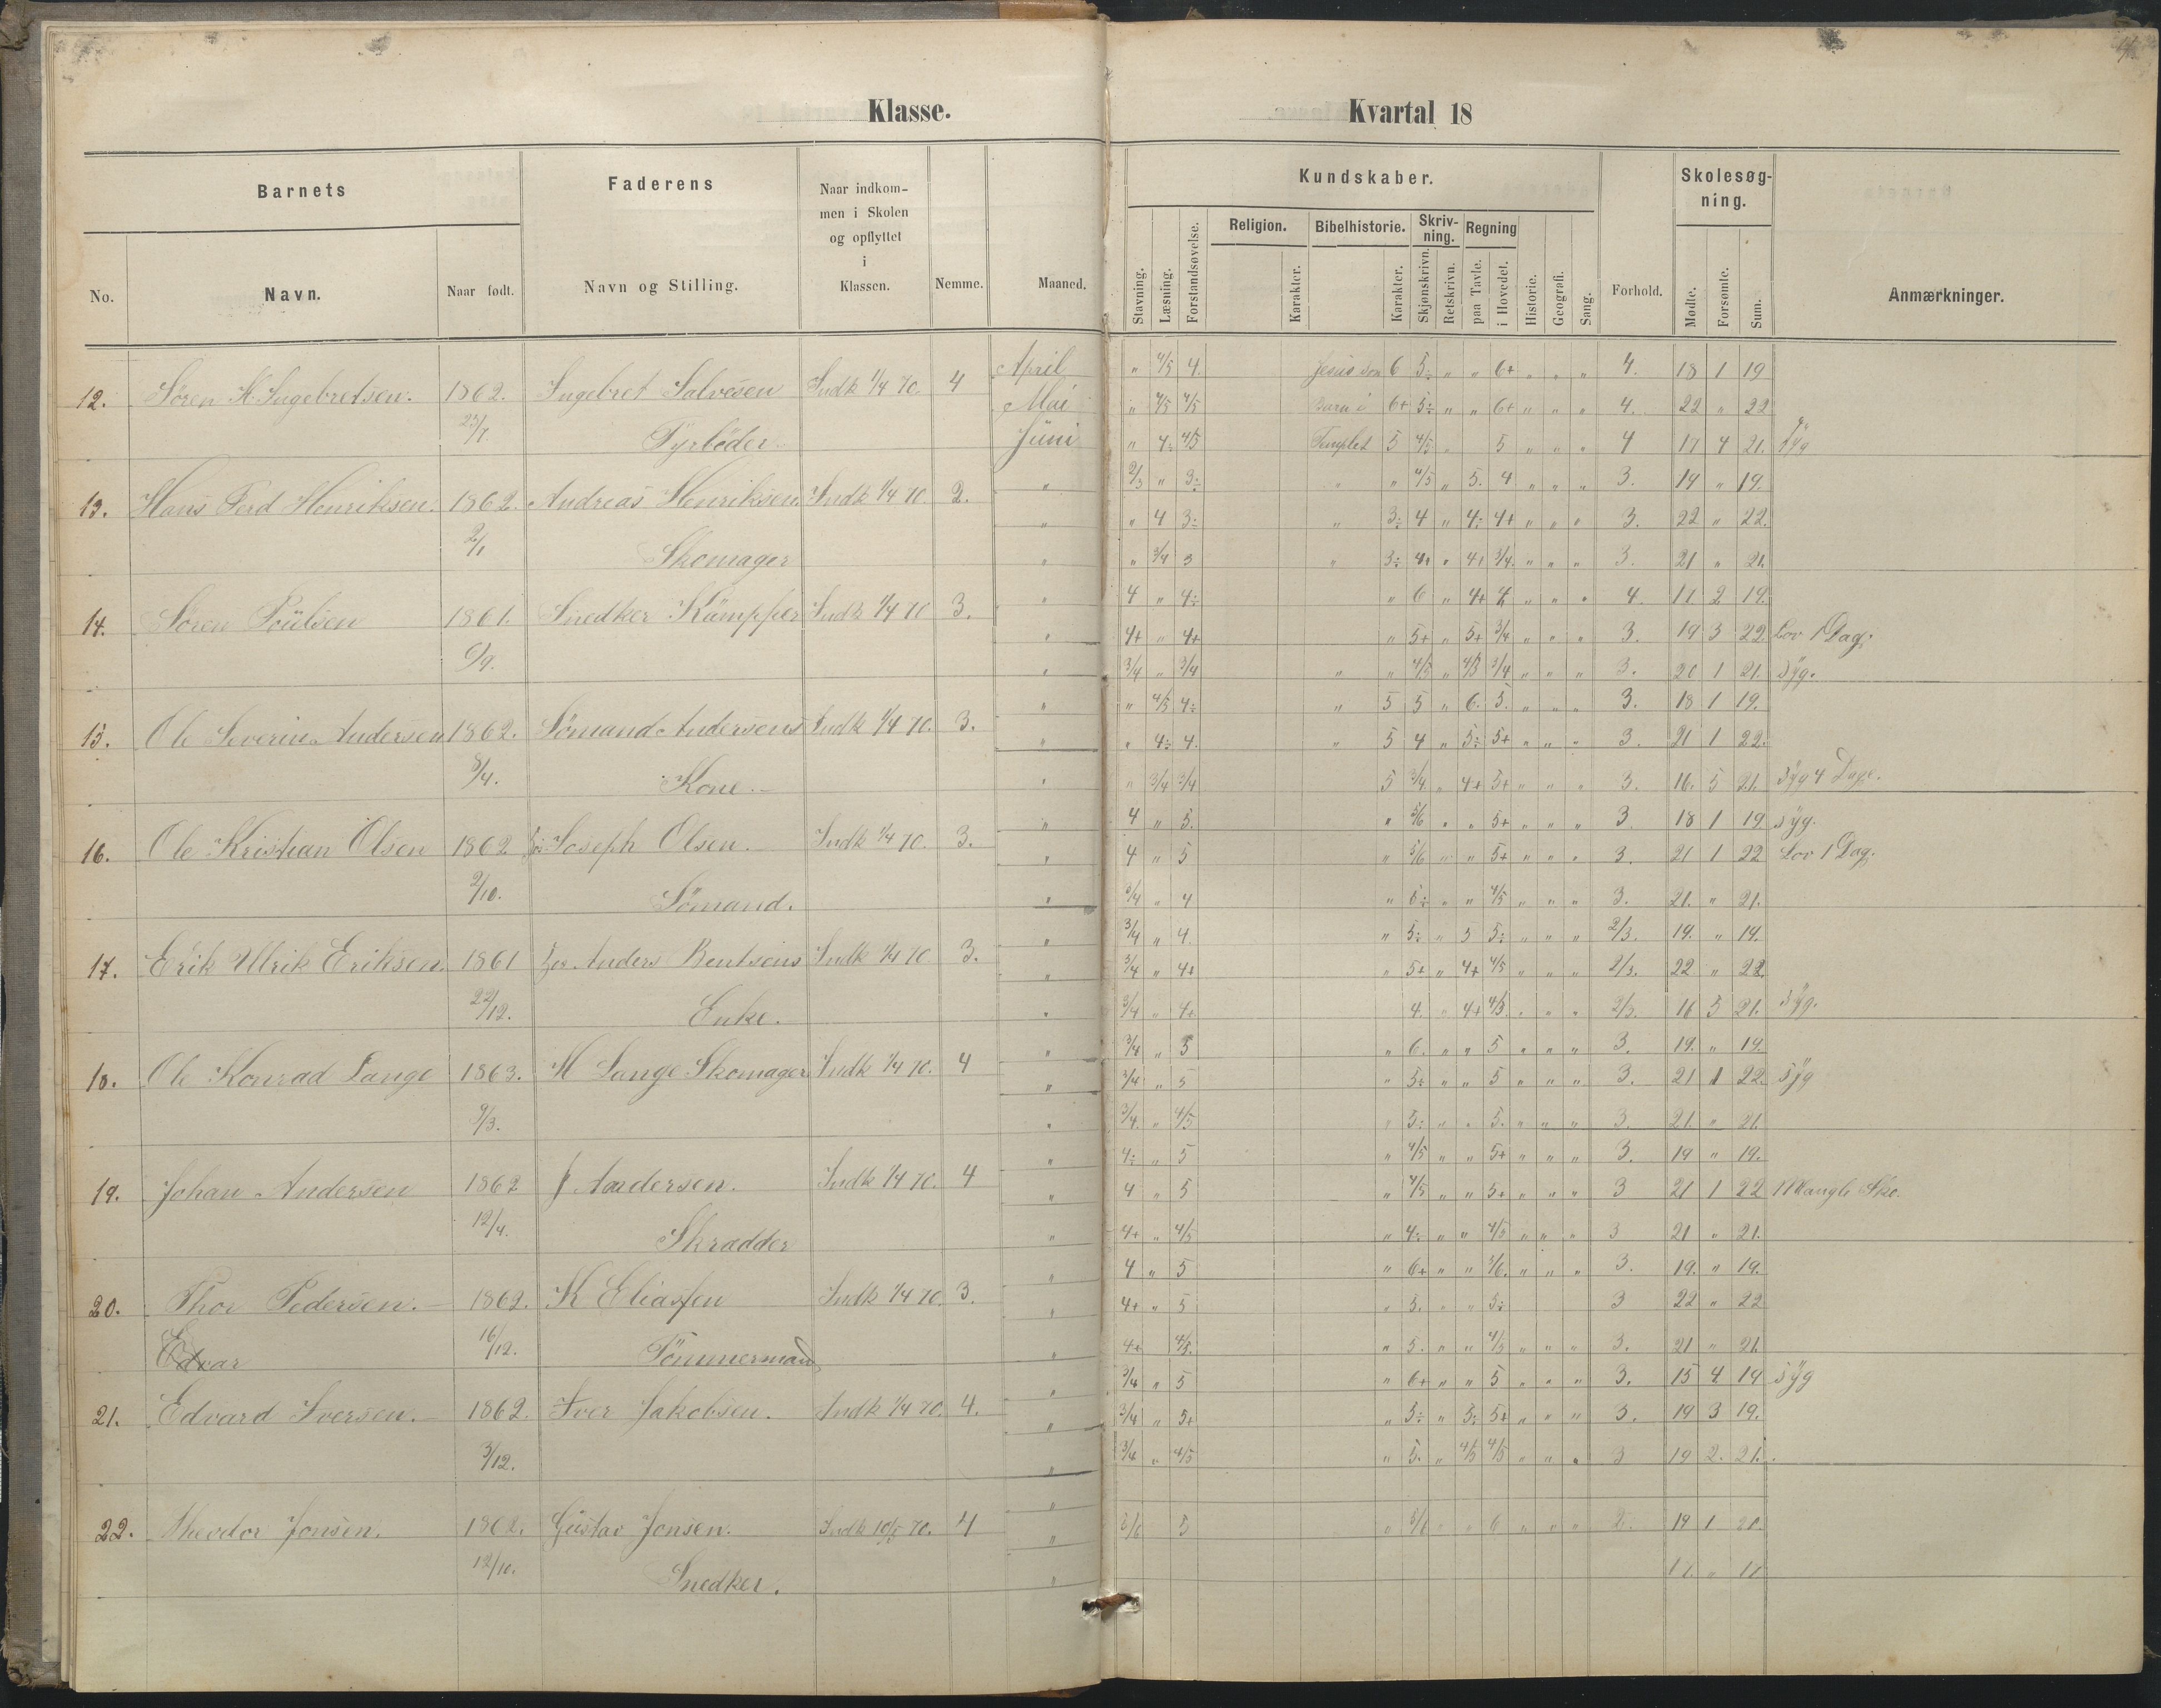 Klasse. Kvartal 18
Barnets Faderens Naar indkommen i Skolen og opflyttet i Klassen. Nemme. Maaned. Kundskaber. Forhold. Skolesøgning. Anmærkninger.
No. Navn. Naar født. Navn og Stilling.
Stavning. Læsning. Forstandsøvelse. Religion. Karakter. Bibelhistorie. Karakter. Skrivning. Skjønskrivn. Retskrivn. Regning paa Tavle. i Hovedet. Historie. Geografi. Sang. Mødte. Forsømte. Sum.
12. Søren K. Ingebretsen. 1862. Ingebret Salvesen Indk 1/4 70. 4 April " 4/5 4. Jesus som 6 5÷ " " 6+ " " " 4. 18 1 19
23/7. Fyrbøder Mai " 4/5 4/5 Barn i 6+ 5÷ " " 6+ " " " 4. 22 " 22
Juni " 4÷ 4/5 Templet 5 4/5 " 5 " " " 4 17 4 21. Syg
13. Hans Ferd Henriksen. 1862. Andreas Henriksen. Indk 1/4 70. 2. " 2/3 " 3÷ " 4/5 " 5. 4 " " " 3. 19 " 19.
2/1 Skomager " " 4 3÷ " 3÷ 4 " 4÷ 4+ " " " 3. 22 " 22.
" " 3/4 3 " 3÷ 4+ " 4+ 3/4. " " " 3. 21 " 21.
14. Søren Poulsen 1861. Snedker Kämpper Indk 1/4 70 3. " 4 " 4÷ " 6 " 4+ 4 " " " 4. 17 2 19.
6/9. " 4+ " 4+ " 5+ " 5+ 3/4 " " " 3. 19 3 22. Lov 1 Dag.
" 3/4 " 3/4 " " 4/5 " 4/5 3/4 " " " 3. 20 1 21. Syg.
15. Ole Severin Andersen 1862. Sømand Andersens Indk 1/4 70. 3. " " 4/5 4÷ " 5 5 " 6. 5. " " " 3. 18 1 19.
8/4. Kone. " " 4÷ 4. " 5 4 " 5÷ 5+ " " " 3. 21 1 22.
" " 3/4 3/4 5 3/4 " 4+ 5+ " " " 3. 16. 5 21. Syg 4 Dage.
16. Ole Kristian Olsen 1862 Joseph Olsen. Indk 1/4 70. 3. " 4 " 5. " 5/6 " " 5+ " " " 3. 18 1 19 Syg.
2/10. Sømand. " 4 " 5 " 5/6 " " 5+ " " " 3. 21 1 22 Lov 1 Dag.
" 3/4 " 4 " 6÷ " " 4/5 " " " 3. 21. " 21.
17. Erik Ulrik Eriksen. 1861 Anders Bentsens Indk 1/4 70 3. " 3/4 " 4. " 5÷ " 5 5÷ " " " 2/3. 19. " 19.
22/12. Enke. " 3/4 " 4+ " 5+ " 4+ 4/5 " " " 2/3. 22 " 22.
" 3/4 " 4+ 4. " 4+ 4/5. " " " 2/3. 16 5 21. Syg.
18. Ole Konrad Lange 1863. H Lange Skomager Indk 1/4 70. 4 " 3/4 " 5 " 6. " " 5 " " " 3. 19. " 19.
9/3. " 3/4 " 5 " 5÷ " " 5 " " " 3. 21 1 22. Syg
" 3/4. " 4/5 " 5÷ " " 5. " " " 3. 21. " 21.
19. Johan Andersen 1862 J Andersen. Indk 1/4 70. 4 " 4÷ " 5 " 4/5 " " 5+ " " " 3. 19 " 19.
12/4. Skrædder " 4 " 5 " 4/5 " " 5+ " " " 3 21 1 22 Mangle Sko.
" 4+ " 4/5 " 4÷ " " 4/5 " " " 3 21 " 21.
20. Thor Pedersen. 1862. K Eliassen Indk 1/4 70. 3. " 4 " 5 " 6+ " " 5/6. " " " 3. 19. " 19.
Edvar 16/12. Tømmermand " 4+ " 5 " 5. " " 5÷ 3 22 " 22
" 4+ 4/5. " 5. " " 4/5 " " " 3. 21 " 21.
21. Edvard Iversen. 1862. Iver Jakobsen. Indk 1/4 70. 4. " 3/4 " 5 " 6+ " " 5 " " " 3. 15 4 19 Syg
3/12. " 3/4 " 5+ " 5÷ " 5÷ 5+ " " " 3. 19 3 19.
" 3/4 " 4/5 " 5. " 4/5 4/5 " " " 3 19 2. 21.
22. Theodor Jonsen. 1862. Gustav Jonsen. Indk 10/5 70. 4 " 5/6 " " 6 " " " 2. 19 1 20.
12/10. Snedker. " 17. " 17